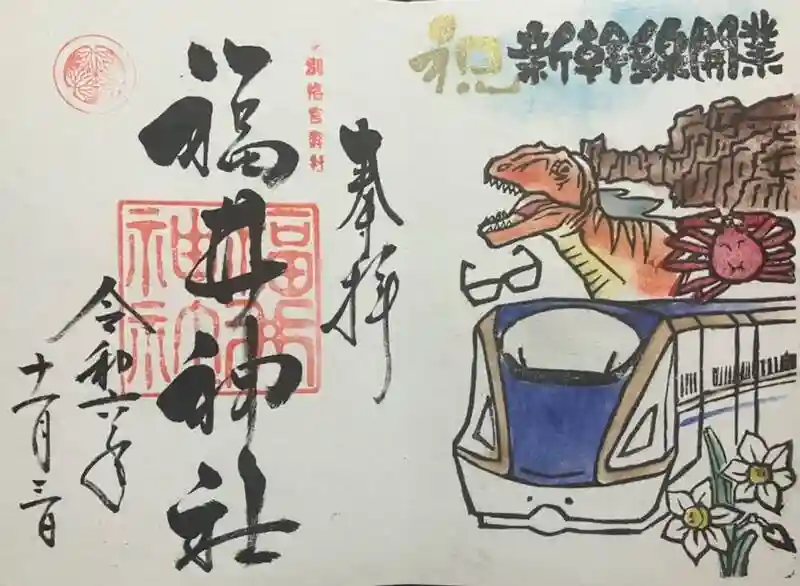 祝 新幹線開業
奉拝
別格官幣社
福井神社
福井神社
令和六年
十一月三日